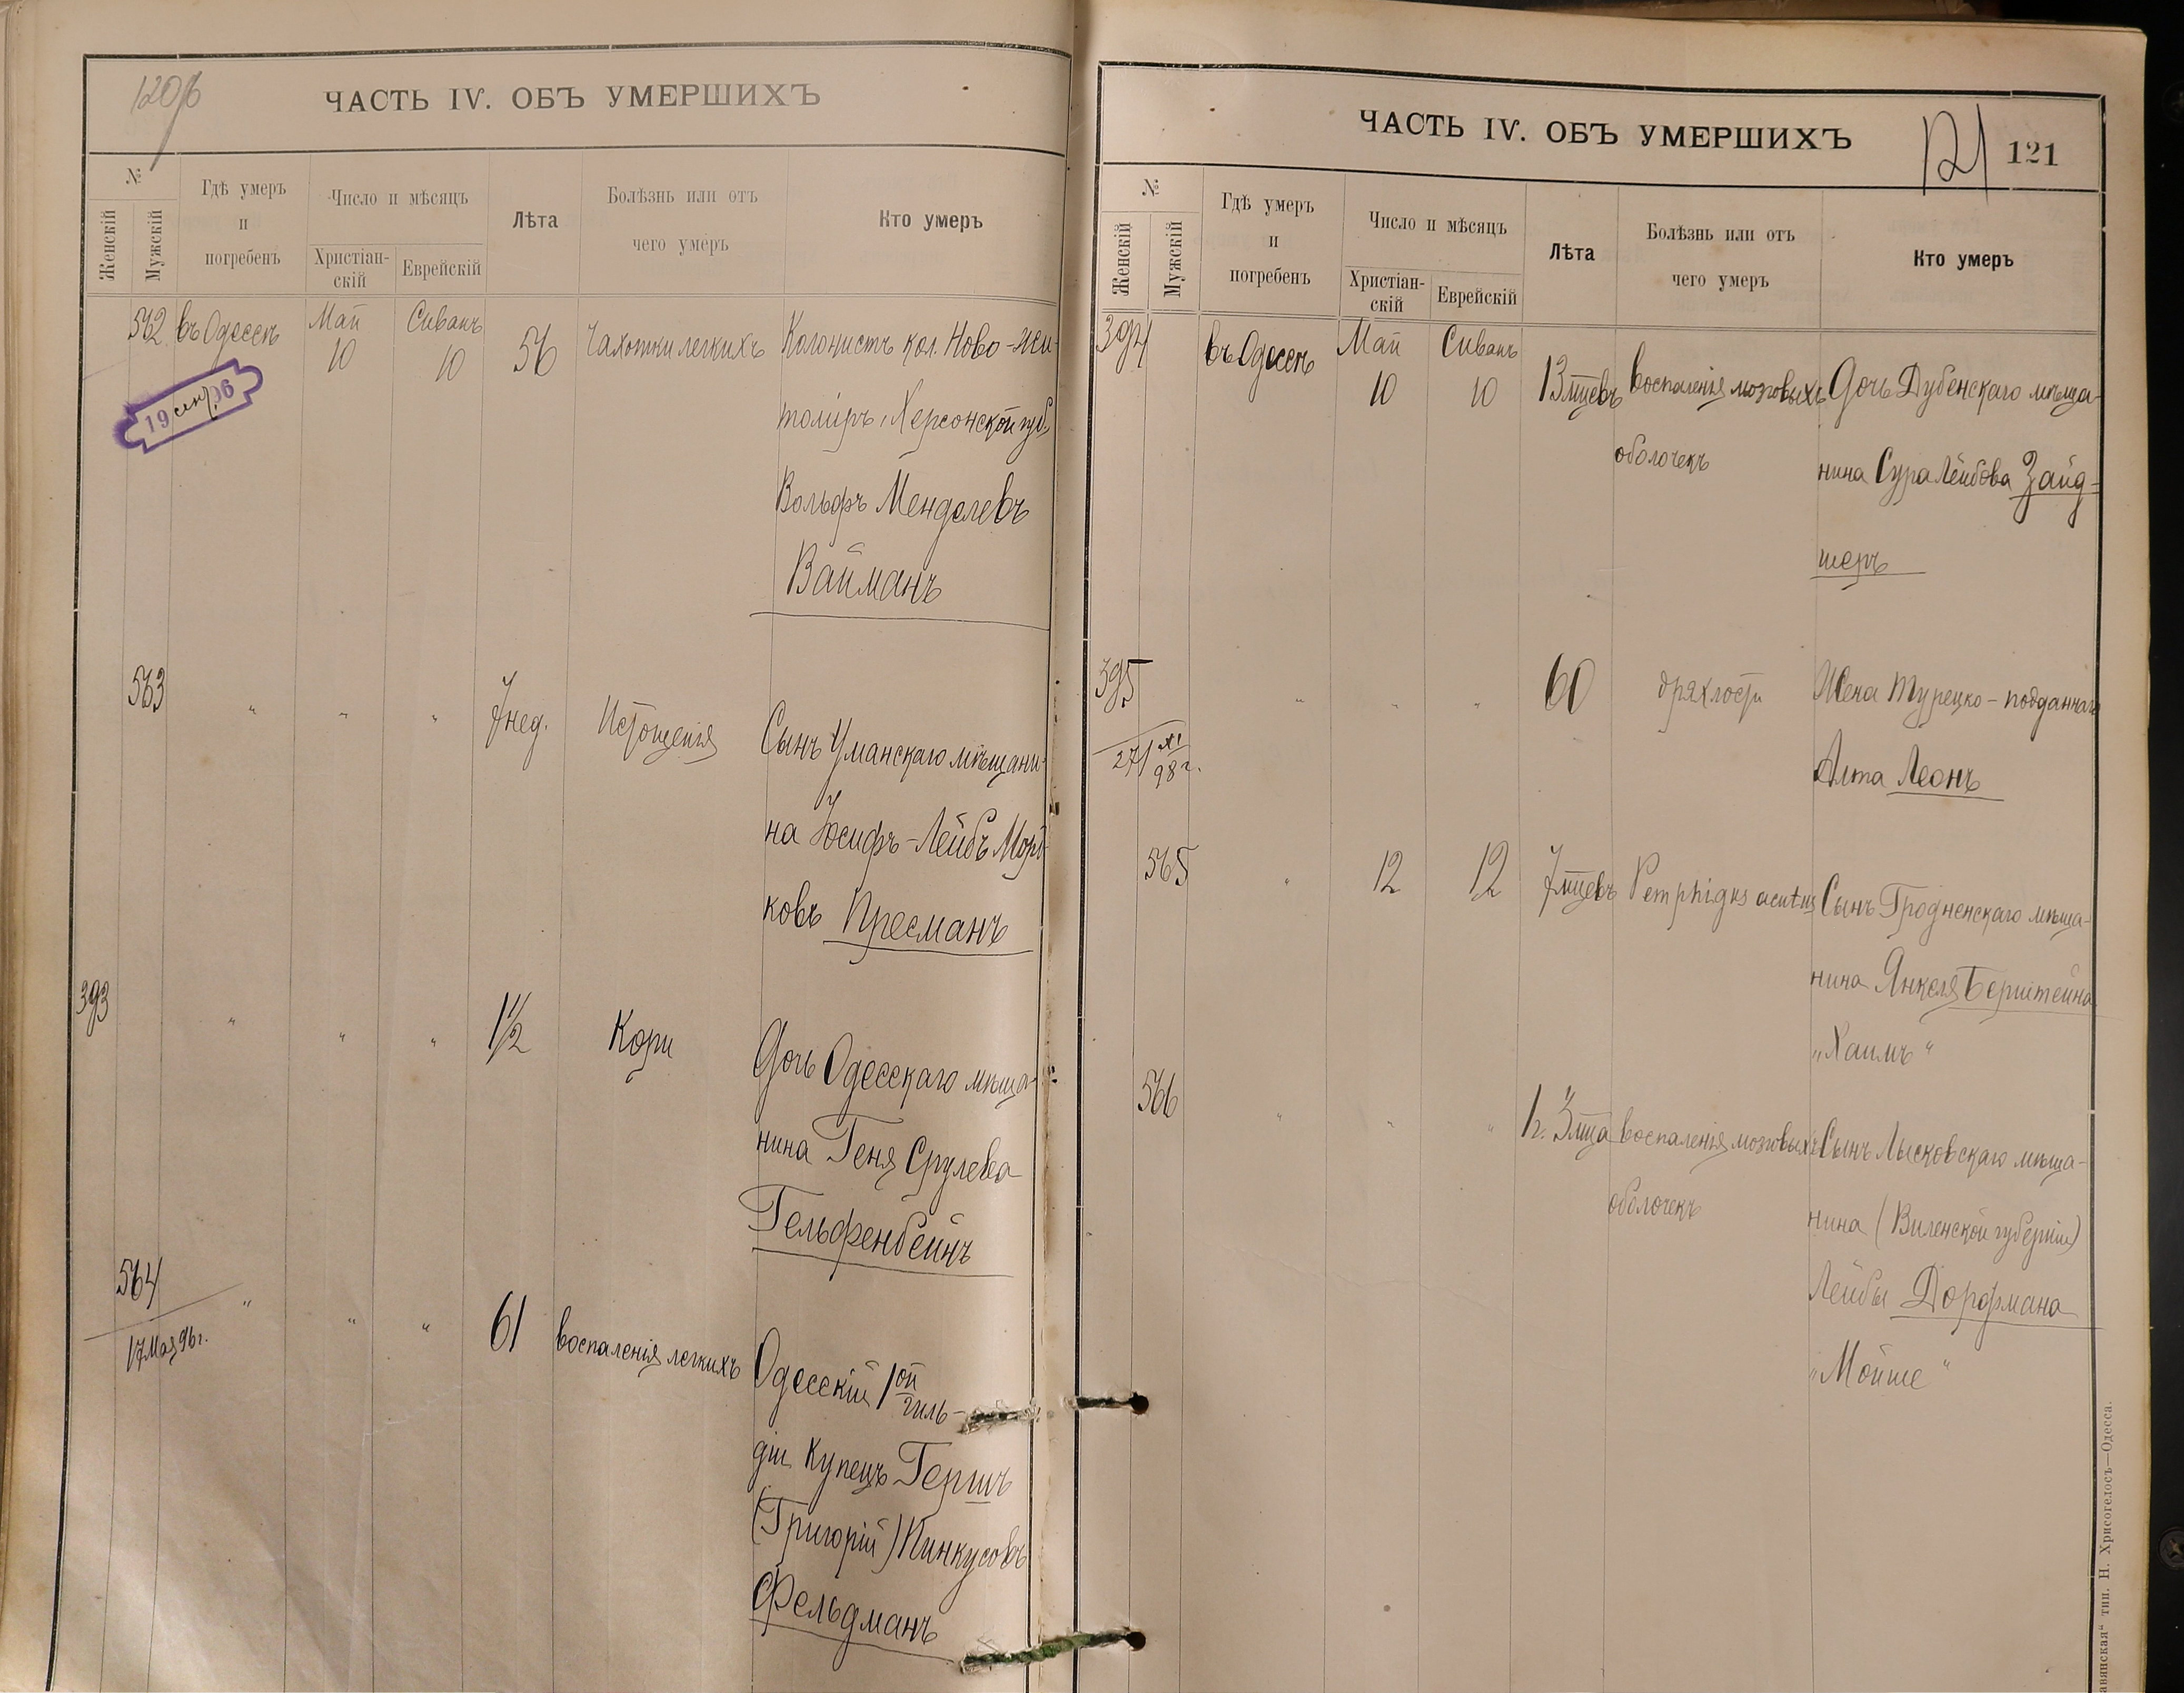 120б
ЧАСТЬ IV. ОБЪ УМЕРШИХЪ
№
Женскій
Мужскій
Гдѣ умеръ
и
погребенъ
Число и мѣсяцъ
Христіан-
скій
Еврейскій
Лѣта
Болѣзнь или отъ
чего умеръ
Кто умеръ
562 въ Одессѣ Май 10 Сиванъ 10 56 Чахотки легкихъ Колонистъ кол. Ново-жи-
томіръ, Херсонской губ.
Вольфъ Менделевъ
Вайманъ
19 сент. 96
563 " " " 7 нед. Истощенія Сынъ Уманскаго мѣщани-
на Іосифъ-Лейбъ Морд-
ковъ Пресманъ
393 " " " 1½ Кори Дочь Одесскаго мѣща-
нина Геня Срулева
Гельфенбейнъ
564 " " " 61 воспаленія легкихъ Одесскій 1ой гиль-
17 Мая 96 г.
діи Купецъ Гершъ
(Григорій) Пинкусовъ
Фельдманъ
ЧАСТЬ IV. ОБЪ УМЕРШИХЪ
121
121
№
Женскій
Мужскій
Гдѣ умеръ
и
погребенъ
Число и мѣсяцъ
Христіан-
скій
Еврейскій
Лѣта
Болѣзнь или отъ
чего умеръ
Кто умеръ
394 въ Одессѣ Май 10 Сиванъ 10 13 мцевъ воспаленія мозговыхъ Дочь Дубенскаго мѣща-
оболочекъ нина Сура Лейбова Зайд-
шеръ
395 " " " 60 дряхлости Жена Турецко-подданнаго
27/XI 98 г.
Алта Леонъ
565 " 12 12 7 мцевъ Pemphigus acutus Сынъ Гродненскаго мѣща-
нина Янкеля Берштейна
„Хаимъ"
566 " " " 1 г. 3 мца воспаленія мозговыхъ Сынъ Лысковскаго мѣща-
оболочекъ нина (Виленской губерніи)
Лейбы Дорфмана
„Мойше"
авянская" тип. Н. Хрисогелосъ—Одесса.